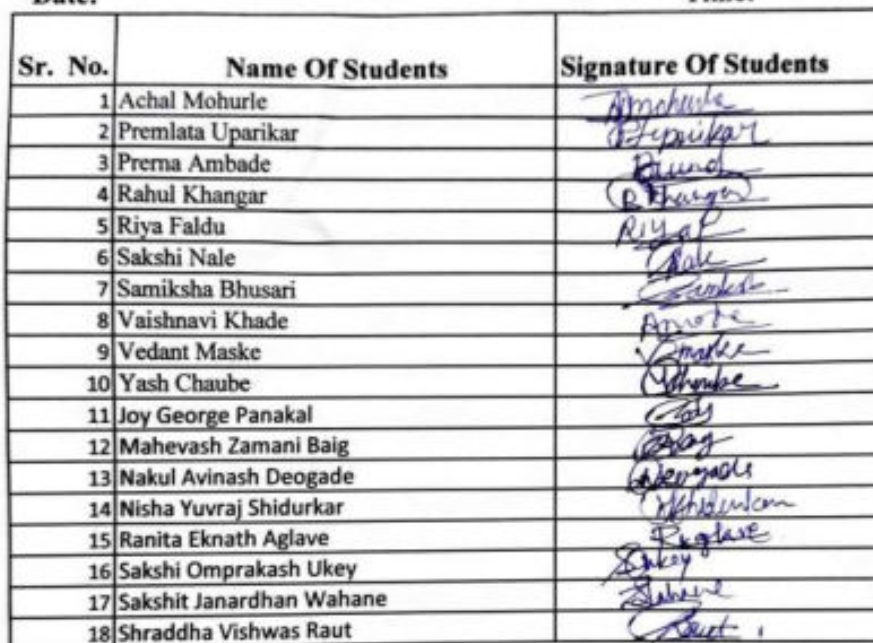 Sr. No. Name Of Students Signature Of Students
1 Achal Mohurle AMohurle
2 Premlata Uparikar Puparikar
3 Prerna Ambade
4 Rahul Khangar RKhangar
5 Riya Faldu Riyaf
6 Sakshi Nale Nale
7 Samiksha Bhusari
8 Vaishnavi Khade
9 Vedant Maske Vmaske
10 Yash Chaube
11 Joy George Panakal
12 Mahevash Zamani Baig
13 Nakul Avinash Deogade
14 Nisha Yuvraj Shidurkar
15 Ranita Eknath Aglave Raglave
16 Sakshi Omprakash Ukey SUkey
17 Sakshit Janardhan Wahane
18 Shraddha Vishwas Raut Raut